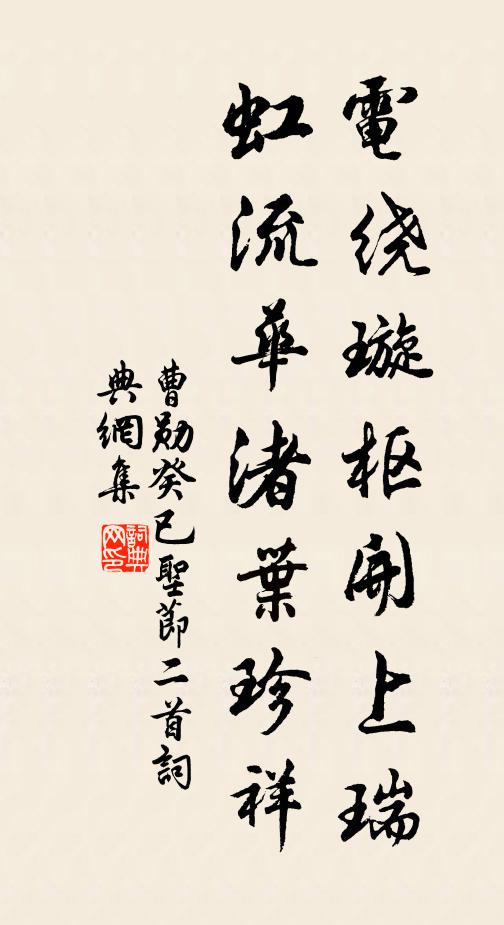 電绕璇枢開上瑞
虹流華渚葉珍祥
曹勛癸巳聖節二首詞
典網集
詞典
网印